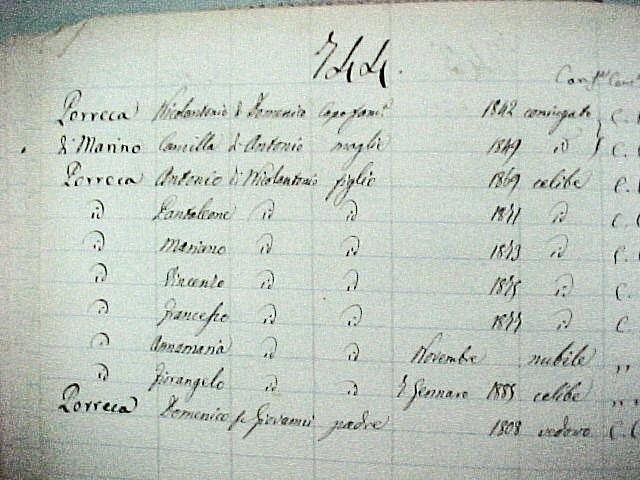 744.
Porreca Nicolantonio di Domenico Capo fam.ª 1842 coniugato C.
di Marino Camilla di Antonio moglie 1849 id C.
Porreca Antonio di Nicolantonio figlio 1869 celibe C.
id Pantaleone id id 1871 id C.
id Mariano id id 1873 id C.
id Vincenzo id id 1875 id C.
id Francesco id id 1877 id C
id Annamaria id id Novembre nubile "
id Fiorangelo id id 7 Gennaro 1885 celibe "
Porreca Domenico fu Giovanni padre 1808 vedovo C.